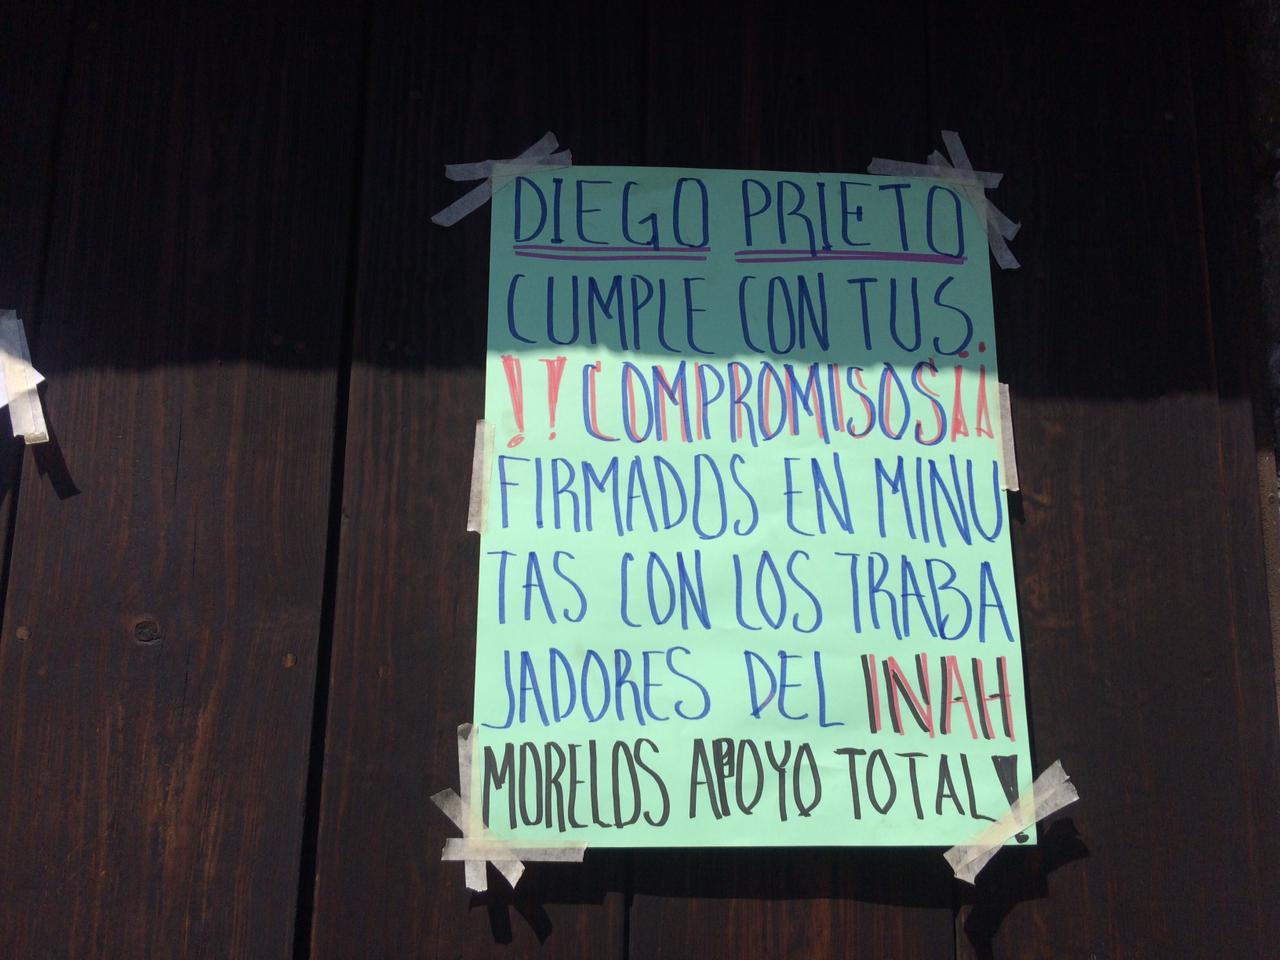 DIEGO PRIETO
CUMPLE CON TUS
!! COMPROMISOS ¡¡
FIRMADOS EN MINU
TAS CON LOS TRABA
JADORES DEL INAH
MORELOS APOYO TOTAL!